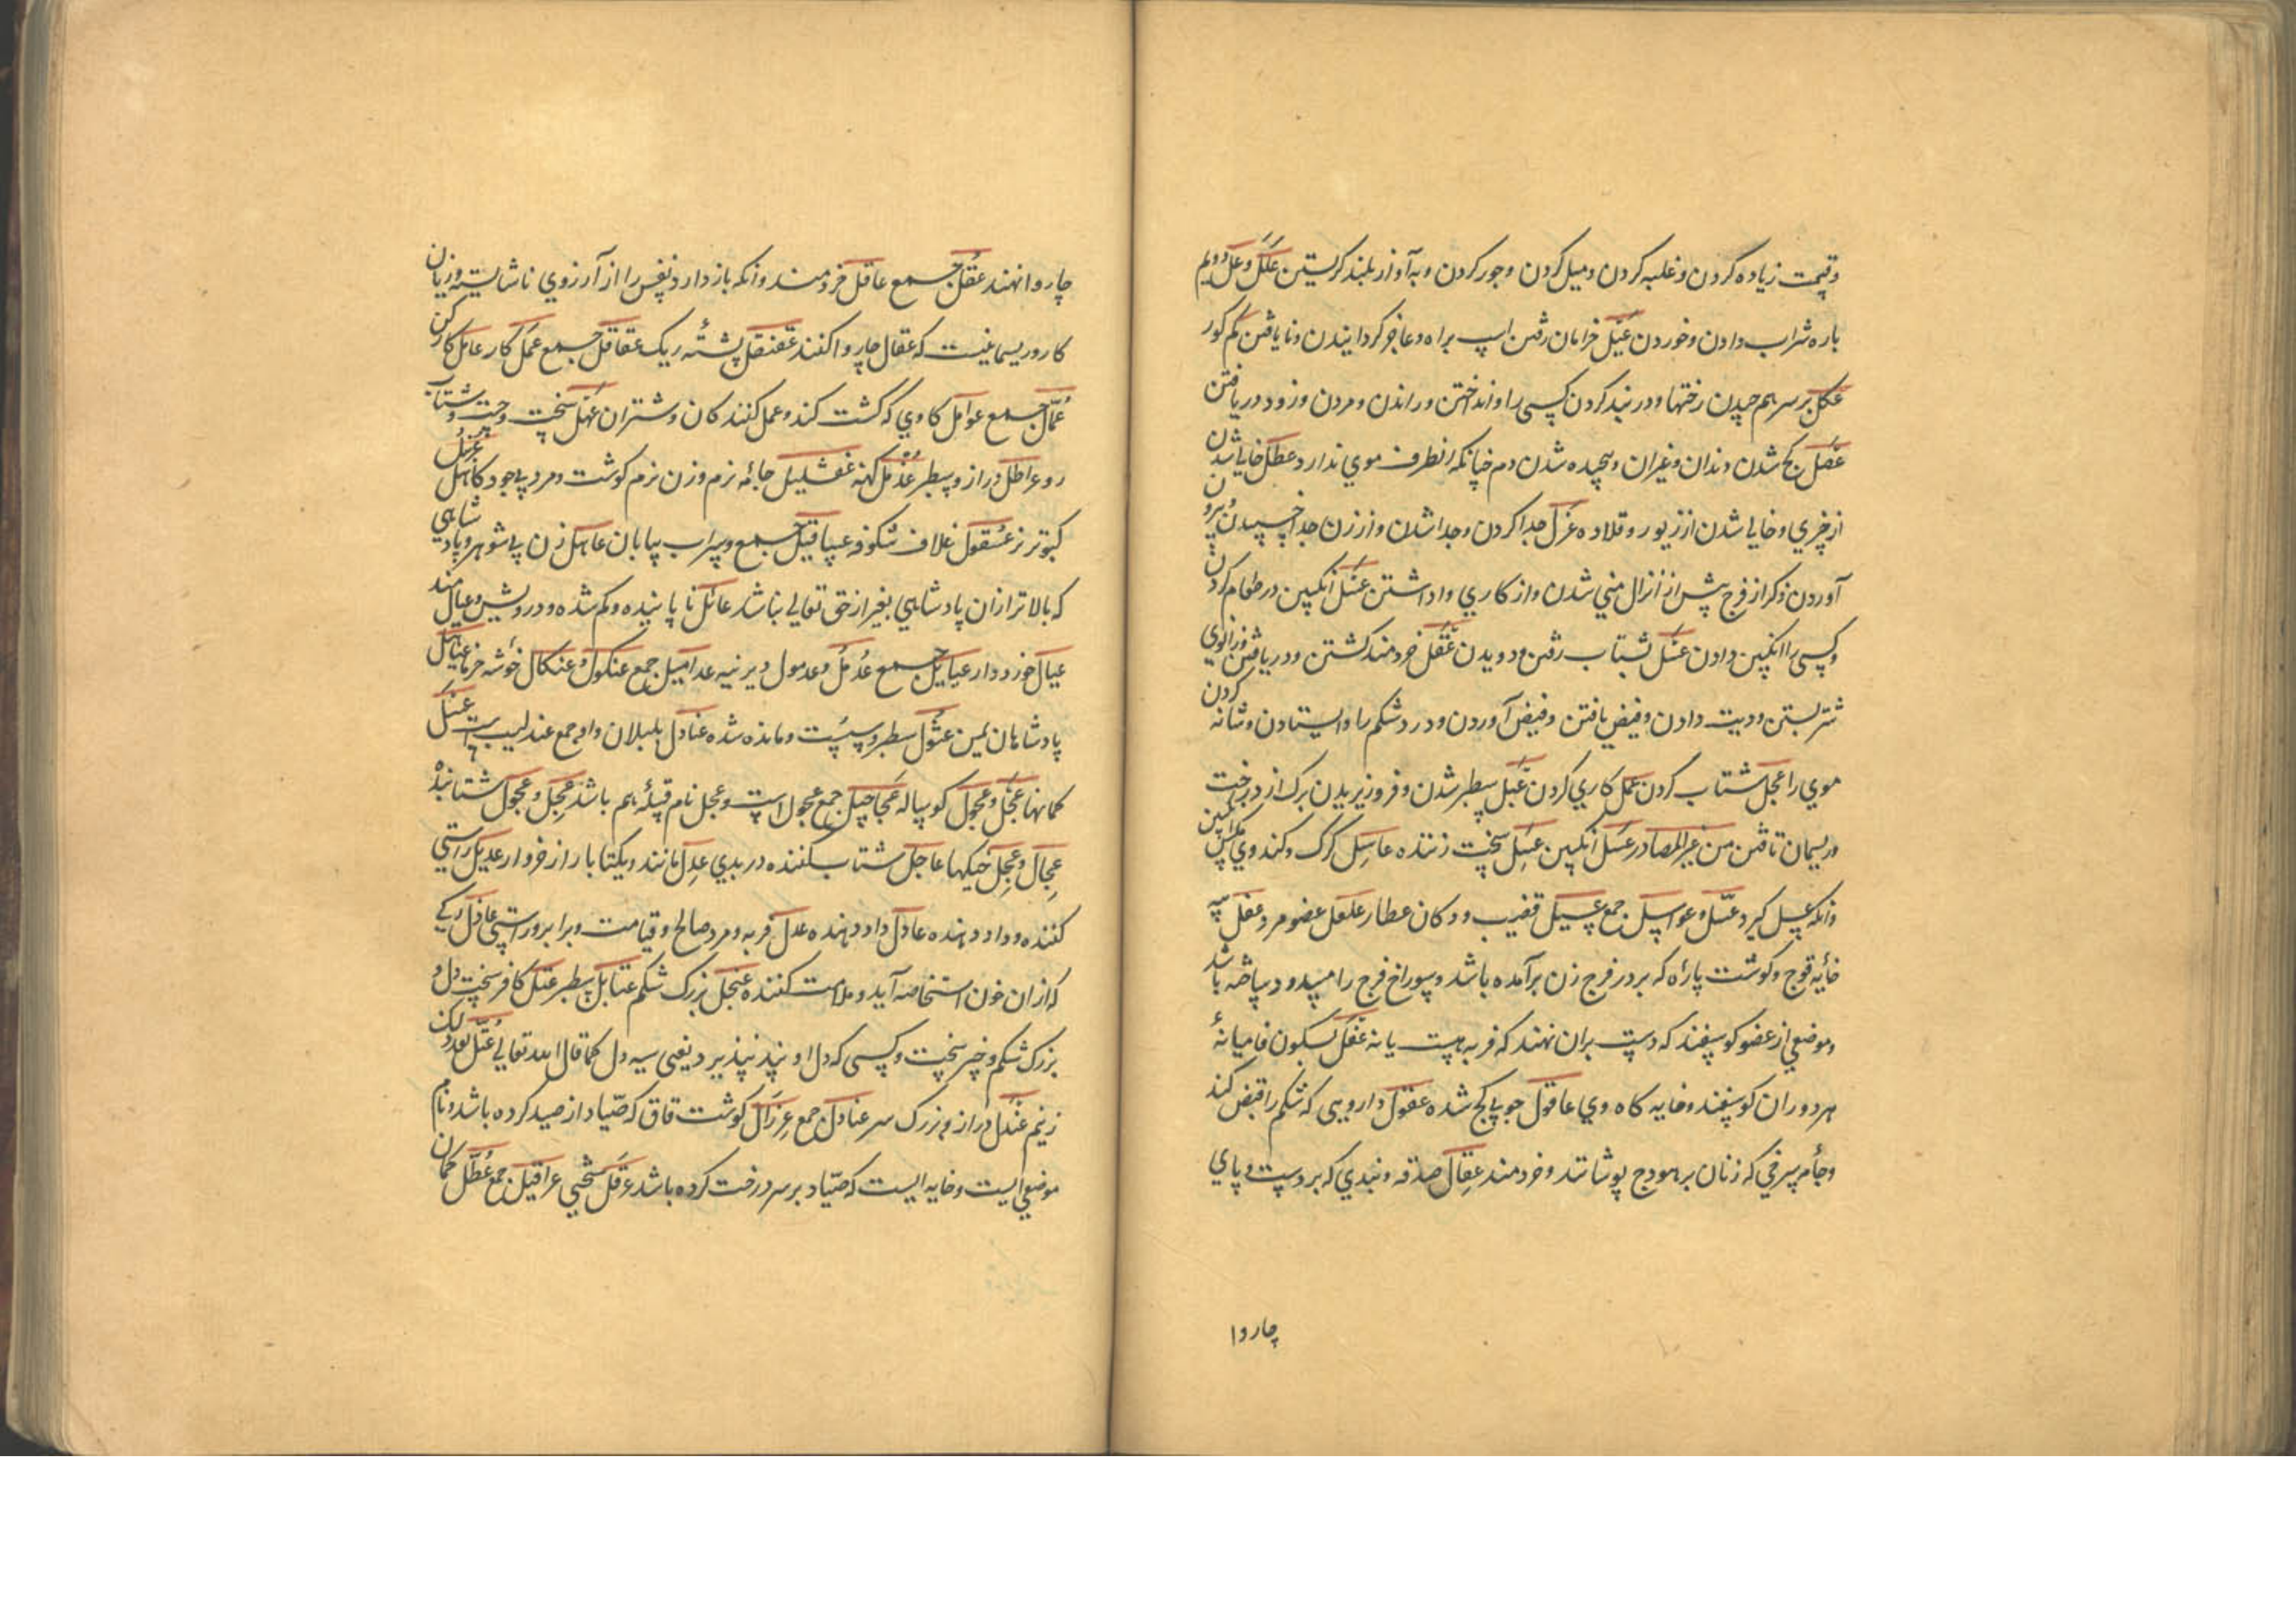 وقیمت زیاده کردن وغلبه کردن ومیل کردن وجور کردن وبه آواز بلند کریستن علل وعل دویم
باره شراب دادن وخوردن عیل خرامان رفتن اسپ براه وعاجز کردانیدن ونایافتن کم کور
عکل بر سر هم چیدن رختها ودر بند کردن کسی را وانداختن وراندن ومردن وزود دریافتن
عصل کج شدن دندان وغیران وپیچیده شدن دم چنانکه انطرف موی ندارد عطل خالی شدن
از چیزی وخالی شدن از زیور وقلاده عزل جدا کردن وجدا شدن واز زن جدا خسپیدن وبیرون
آوردن ذکر از فرج پیش از انزال منی شدن واز کاری واداشتن عسل انکبین در طعام کردن
وکسی را انکبین دادن عسل بشتاب رفتن ودویدن عقل خردمند کشتن ودریافتن وزانوی
شتر بستن ودیت دادن وقبض یافتن وقبض آوردن ودرد شکم را وایستادن وشانه کردن
موی را عجل شتاب کردن عمل کاری کردن عبل سطبر شدن وفرو ریزیدن برک از درخت
وریسمان تافتن من غیر المصادر عسل انکبین عسل سخت زننده عاسل کرک وکندوی مکس انکبین
وانکه عسل کیرد عسل وعواسل جمع عسیل قضیب ودکان عطار علعل عضو مرد عفل پیه
خایه قوج وکوشت پاره که بر در فرج زن برآمده باشد وسوراخ فرج را میبندد وسپاضه باشد
وموضعی از عضو کوسفند که دست بران نهند که فربه هست یا نه عفل بسکون فا میانهٔ
هر دو ران کوسفند وخایه کاه وی عاقول جوی کج شده عقول دارویی که شکم را قبض کند
وجامه سرخی که زنان بر هودج پوشانند وخردمند عقال صدقه وبندی که بر دست وپای
چاروا
چاروا نهند عقل جمع عاقل خردمند وانکه باز دارد نفس را از آرزوی ناشایسته وزیان
کار وریسمانیست که عقال چاروا کنند عقنقل پشتهٔ ریک عقاقل جمع عمل کار عامل کارکن
عمال جمع عوامل کاوی که کشت کند وعمل کنند کان وشتران عنهل سخت وچست وشتاب
رو عراطل دراز وسطبر عذمل کهنه غفشلیل جامهٔ نرم وزن نرم کوشت ومرد بی جود کاهل عزهل
کبوتر نر عسقول غلاف شکوفه عساقیل جمع وسراب بیابان عاهل زن بی شوهر وپادشاهی
که بالاتر ازان پادشاهی بغیر از حق تعالی نباشد عائل ناپاینده وکم شده ودرویش وعیالمند
عیال خورد دار عیاییل جمع عدمل وعدمول دیرینه عدامیل جمع عنکول وعنکال خوشه خرما عیاهل
پادشاهان یمن عثول سطبر وسست ومانده شده عنادل بلبلان واو جمع عندلیب است عتل
کمانها عجل وعجول کوساله عجاجیل جمع عجول است وعجل نام قبیلهٔ هم باشد عجل وعجول شتابنده
عجال وعجل خیکها عاجل شتاب کننده در بدی عدل مانند ویکتا بار از خروار عدیل راستی
کننده وداد دهنده عادل داد دهنده عدل فربه ومرد صالح وقیامت وبرابر وراستی عاذل رکی
که ازان خون استحاضه آید وملامت کننده عنجل بزرک شکم عتابل سطبر عتل کافر سخت دل و
بزرک شکم وخیر سخت وکسی که دل او پند نپذیرد یعنی سیه دل کما قال الله تعالی عتل بعد ذلک
زنیم عندل دراز وبزرک سر عنادل جمع عزال کوشت قاق که صیاد از صید کرده باشد ونام
موضعی است وخایه ایست که صیاد بر سر درخت کرده باشد عرقل سختی عراقیل جمع عطل کمان